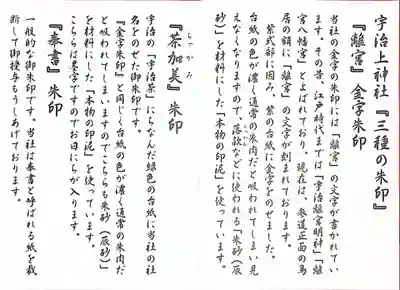 宇治上神社『三種の朱印』
『離宮』金字朱印
当社の金字の朱印には「離宮」の文字が書かれてい
ます。その昔、江戸時代までは「宇治離宮明神」「離
宮八幡宮」とよばれており、現在は、参道正面の鳥
居の額に「離宮」の文字が刻まれております。
紫式部に因み、紫の台紙に金字をのせました。
台紙の色が濃く通常の朱肉だと吸われてしまい見
えなくなりますので、落款などに使われる「朱砂(辰
らっかん
砂)」を材料にした「本物の印泥」を使っています。
らっかみ
『茶加美』朱印
宇治の「宇治茶」にちなんだ緑色の台紙に当社の社
名をのせた御朱印です。
『金字朱印』と同じく台紙の色が濃く通常の朱肉だ
と吸われてしまいますのでこちらも朱砂(辰砂)
を材料にした「本物の印泥」を使っています。
こちらは墨字ですのでお日にちが入ります。
『奉書』朱印
一般的な御朱印です。当社は奉書と呼ばれる紙を裁
断して御授与もうしあげております。